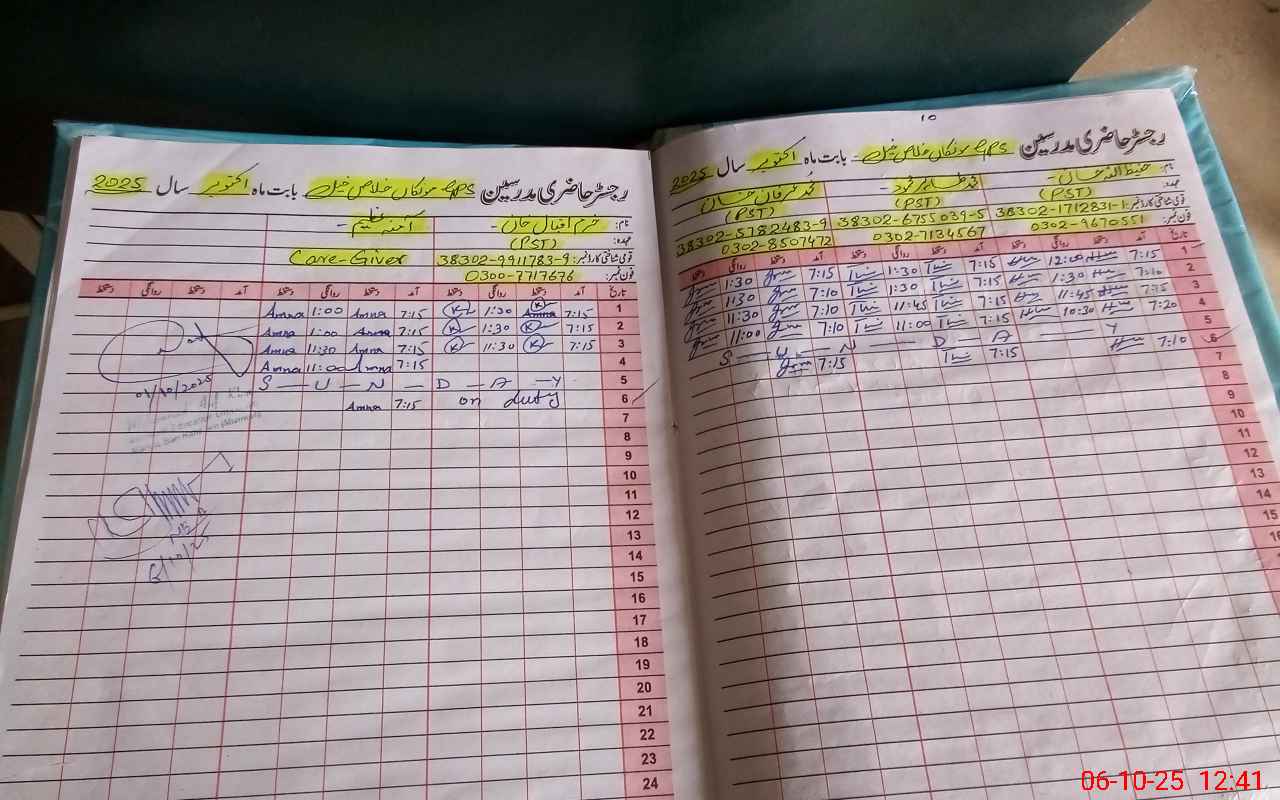 10
رجسٹر حاضری مدرسین GPS مولکاں خلاص خیل بابت ماہ اکتوبر سال 2025
نام: حفیظ اللہ خان - محمد طاہر محمود - محمد عرفان خان
عہدہ: (PST) (PST) (PST)
قومی شناختی کارڈ نمبر: 38302-1712831-1 38302-6755039-5 38302-5782483-9
فون نمبر: 0302-9670551 0302-7134567 0302-8507472
تاریخ آمد دستخط روانگی دستخط آمد دستخط روانگی دستخط آمد دستخط روانگی دستخط
1 7:15 12:00 7:15 1:30 7:15 1:30
2 7:10 1:30 7:15 1:30 7:10 1:30
3 7:15 11:45 7:15 11:45 7:10 11:30
4 7:20 10:30 7:15 11:00 7:10 11:00
5 S — U — N — D — A — Y
6 7:10 7:15 7:15
7
8
9
10
11
12
13
14
15
16
رجسٹر حاضری مدرسین GPS مولکاں خلاص خیل بابت ماہ اکتوبر سال 2025
نام: خرم اقبال خان - آمنہ -
عہدہ: (PST) Care-Giver
قومی شناختی کارڈ نمبر: 38302-9911783-9
فون نمبر: 0300-7717676
تاریخ آمد دستخط روانگی دستخط آمد دستخط روانگی دستخط آمد دستخط روانگی دستخط
1 7:15 Amna K 1:30 K 7:15 Amna 1:00 Amna
2 7:15 K 1:30 K 7:15 Amna 1:00 Amna
3 7:15 K 11:30 K 7:15 Amna 11:30 Amna
4 7:15 Amna 11:00 Amna
5 S — U — N — D — A — Y
6 on duty 7:15 Amna
7
8
9
10
11
12
13
14
15
16
17
18
19
20
21
22
23
24
01/10/2025
6/10/25
06-10-25 12:41